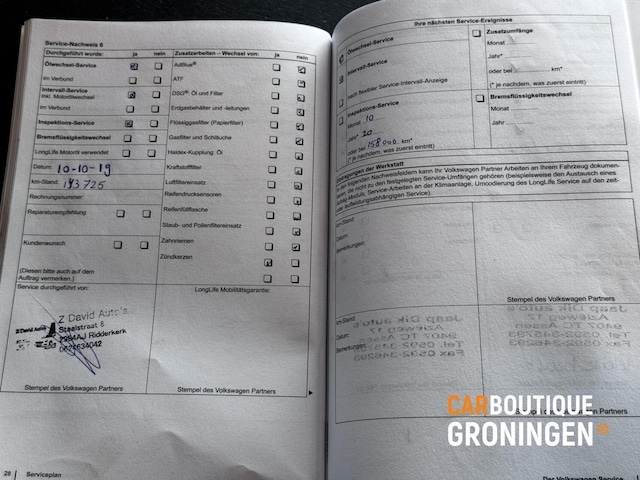 Service-Nachweis 6
Durchgeführt wurde: ja nein
Ölwechsel-Service
im Verbund
Intervall-Service
inkl. Motorölwechsel
im Verbund
Inspektions-Service
Bremsflüssigkeitswechsel
LongLife Motoröl verwendet
Datum: 10-10-19
km-Stand: 143725
Rechnungsnummer:
Reparaturempfehlung
Kundenwunsch
(Diesen bitte auch auf dem
Auftrag vermerken.)
Zusatzarbeiten – Wechsel von: ja nein
AdBlue®
ATF
DSG® Öl und Filter
Erdgasbehälter und -leitungen
Flüssiggasfilter (Papierfilter)
Gasfilter und Schläuche
Haldex-Kupplung: Öl
Kraftstofffilter
Luftfiltereinsatz
Reifendrucksensoren
Reifenfüllflasche
Staub- und Pollenfiltereinsatz
Zahnriemen
Zündkerzen
Service durchgeführt von:
Z David Auto's
Staalstraat 8
2984AJ Ridderkerk
0624634042
Stempel des Volkswagen Partners
LongLife Mobilitätsgarantie:
Stempel des Volkswagen Partners
28 Serviceplan
Ihre nächsten Service-Ereignisse
Ölwechsel-Service
Intervall-Service
nach flexibler Service-Intervall-Anzeige
Inspektions-Service
Monat 10
Jahr* 20
oder bei 158.000 km*
(* je nachdem, was zuerst eintritt)
Zusatzumfänge
Monat
Jahr*
oder bei km*
(* je nachdem, was zuerst eintritt)
Bremsflüssigkeitswechsel
Monat
Jahr
Eintragungen der Werkstatt
den folgenden Nachweisfeldern kann Ihr Volkswagen Partner Arbeiten an Ihrem Fahrzeug dokumen-
die nicht zu den festgelegten Service-Umfängen gehören (beispielsweise den Austausch eines
Airbag-Moduls, Service-Arbeiten an der Klimaanlage, Umcodierung des LongLife Service auf den zeit-
laufleistungsabhängigen Service).
km-Stand:
Datum:
Bemerkungen:
Stempel des Volkswagen Partners
km-Stand:
Datum:
Bemerkungen:
Stempel des Volkswagen Partners
CARBOUTIQUE
GRONINGEN
Der Volkswagen Service